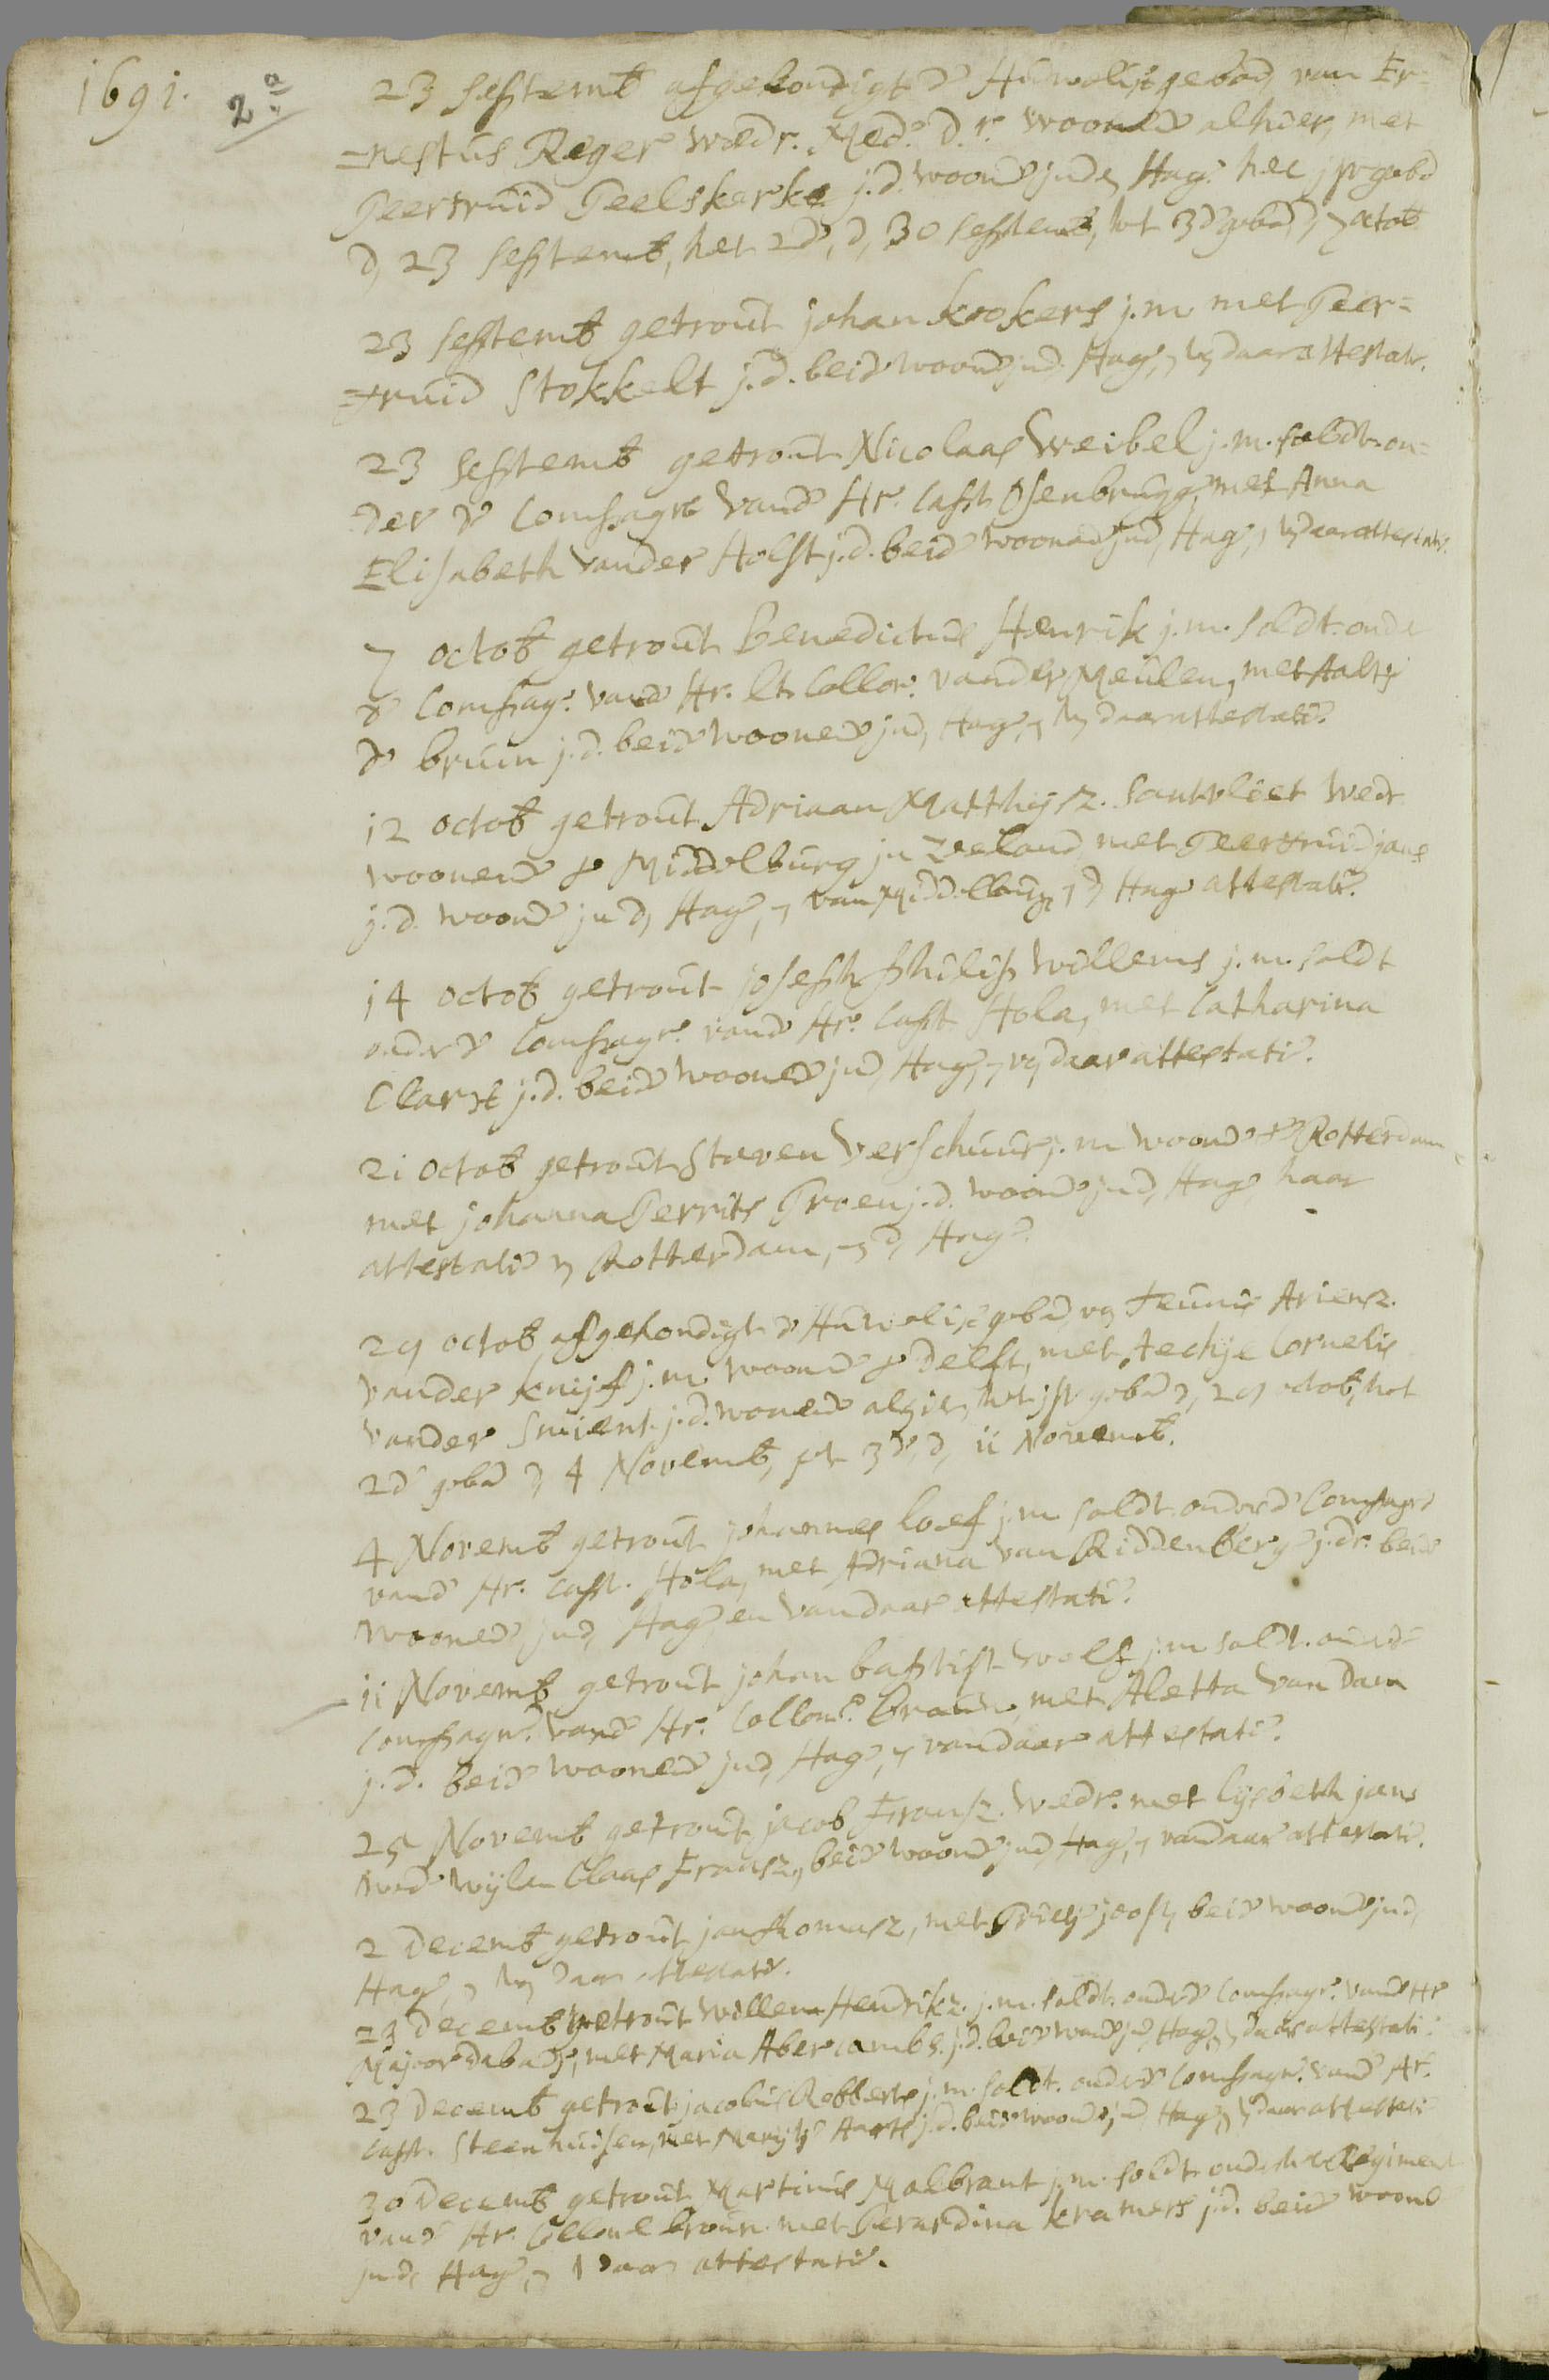 1691.
2a
23 septemb afgekondigt de Huwelijxe geboden van Er=
=nestus Reger wedr. Med. Dr. woonende alhier, met
Geertruid Geelskerke j.d. woonde in den Hage, het 1ste gebod
den 23 septemb, het 2de, den 30 septemb, het 3de gebod den 7 octob
23 septemb getrout johan kookers j.m met Geer=
=truid Stokkelt j.d. beide woonde in den Hage, en van daar attestatie.
23 septemb getrout Nicolaas Weibel j.m. soldt. on=
der de Compagnie vande Hr. Capt. Osenbrugge, met Anna
Elisabeth vander Holst j.d. beide woonende in den Hage, en van daar attestatie.
7 octob getrout Benedictus Henrik j.m. soldt. onder
de Compag. vande Hr. Lt. Collon. vander Meulen, met Aaltje
de bruin j.d. beide woonende in den Hage, en van daar attestatie.
12 octob getrout Adriaan Matthijsz. Santvliet wedr
woonende te Middelburg in Zeeland met Geertruid jans
j.d. woonde in den Hage, en van Middelburg en den Hage attestatie.
14 octob getrout joseph philip willems j.m. soldt
onder de Compagn. vande Hr. Capt. Hola, met Catharina
j.d. beide woonende in den Hage, en van daar attestatie.
21 octob getrout Steven Verschuur j.m woonde te Rotterdam
met johanna Gerrits Groen j.d. woonde in den Hage haar
attestatie van Rotterdam, en den Hage.
29 octob afgekondigt de Huwelijxe geboden van Teunis Ariensz.
vander knijf j.m woonde te Delft, met Aechje Cornelis
vander Smient j.d. woonende alhier, het 1ste gebod den 29 octob, het
2de gebod den 4 Novemb, het 3de, den 11 Novemb.
4 Novemb getrout johannes loef j.m soldt. onder de Compagnie
vande Hr. Capt. Hola, met Adriana van Riddenberge j.dr. beide
woonende in den Hage en van daar attestatie.
11 Novemb getrout johan baptist wolf j.m soldt. onder de
Compagn. vande Hr. Collon. Braun, met Aletta van Dam
j.d. beide woonende in den Hage, en van daar attestatie.
25 Novemb getrout jacob Fransz. wedr. met lijsbeth jans
wede wijlen Claas Fransz, beide woonde in den Hage, en van daar attestatie.
2 Decemb getrout jan thomasz, met Grietje joosten beide woonde in den
Hage, en van daar attestatie.
23 Decemb getrout willem Hendriksz. j.m. soldt. onder de Compagn. vande Hr
Majoor, met Maria Abercombs. j.d. beide woonde in den Hage, en van daar attestatie.
23 Decemb getrout jacobus Robberts j.m. soldt. onder de Compagn. vande Hr.
Capt. Steenhuisen, met Marijtje Aarts j.d. beide woonde in den Hage, en van daar attestatie
30 Decemb getrout Martinus Malbrant j.m. soldt onder het Regiment
vande Hr. Collonel broun. met Gerardina kramers j.d. beide woond
in den Hage, en van daar attestatie.